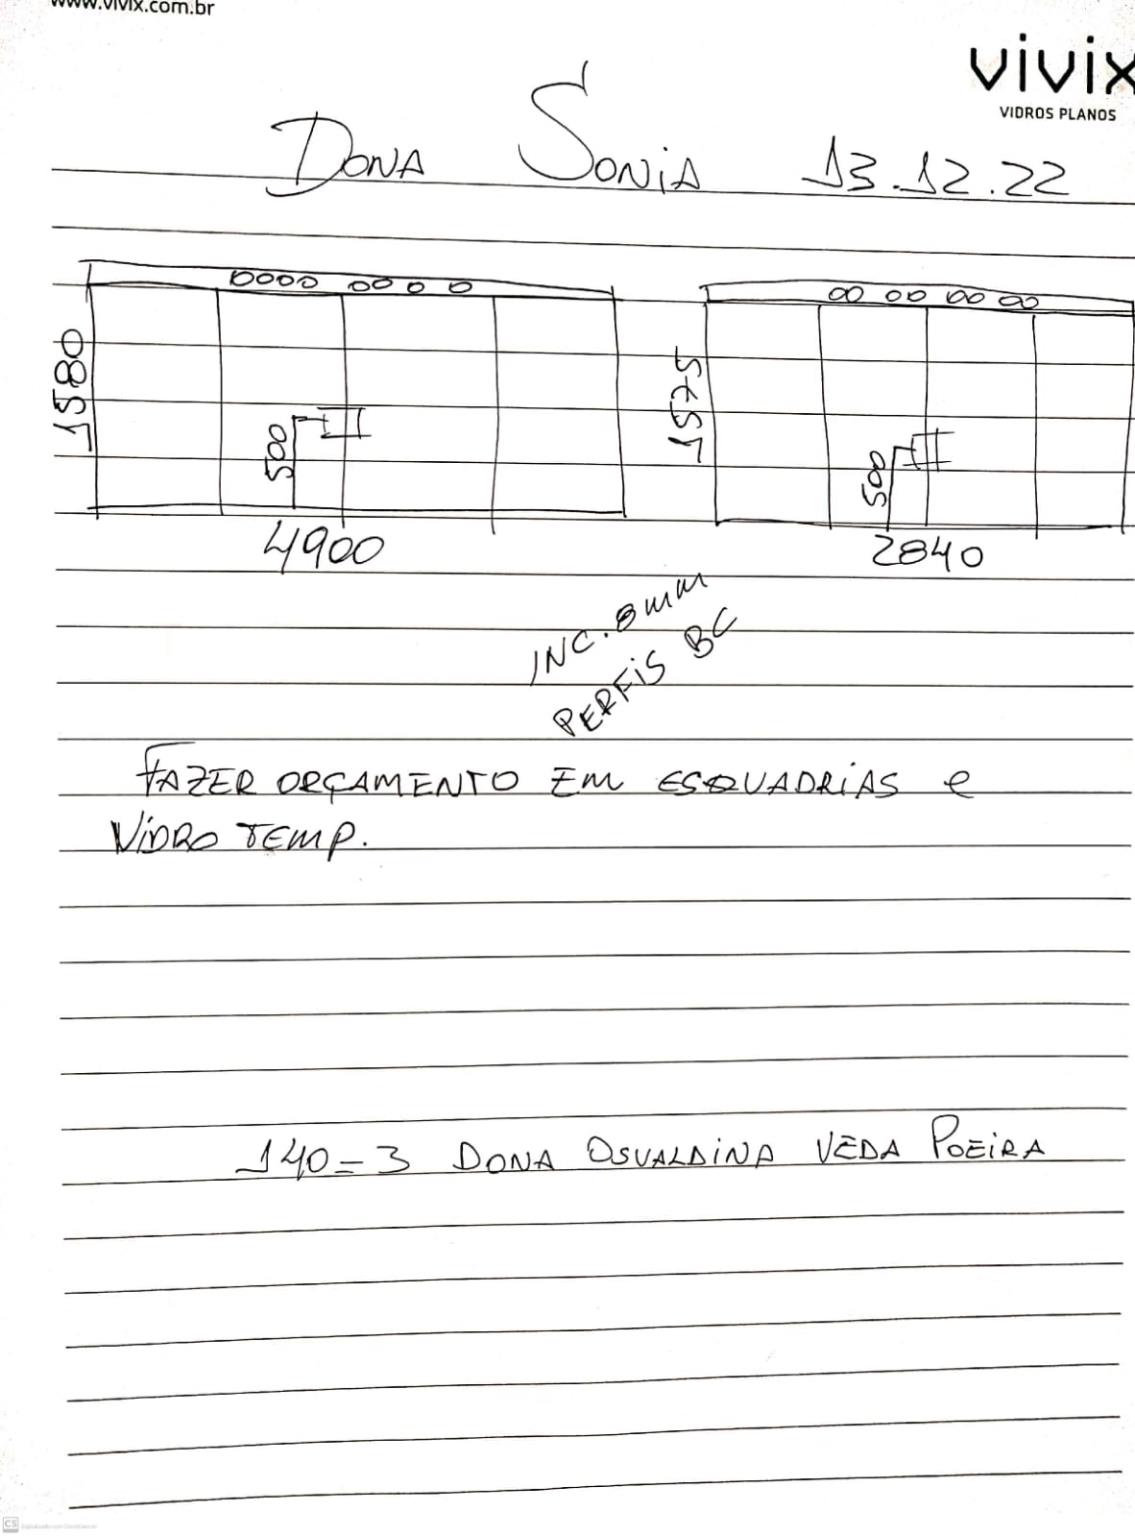 www.vivix.com.br
vivix
VIDROS PLANOS
DONA SONIA 13.12.22
1580
500
4900
1575
500
2840
INC. 8mm
PERFIS BC
FAZER ORÇAMENTO EM ESQUADRIAS e
VIDRO TEMP.
140=3 DONA OSVALDINA VEDA POEIRA
CS